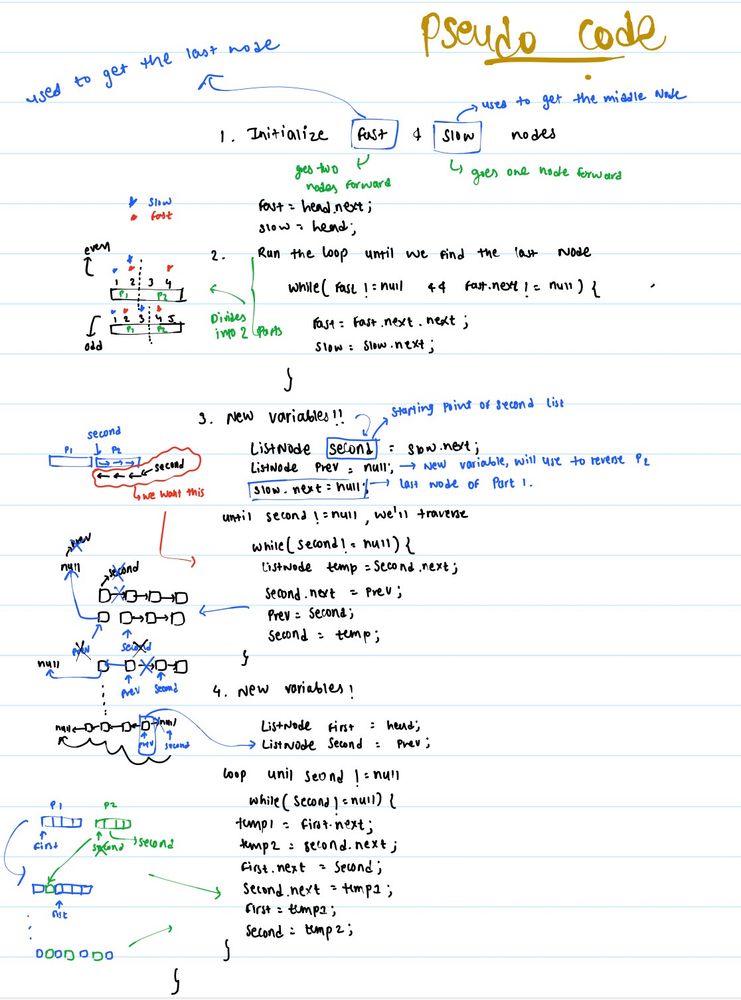 Pseudo Code
used to get the last node
used to get the middle Node
1. Initialize fast & slow nodes
goes two nodes forward
goes one node forward
slow
fast
fast = head.next;
slow = head;
even
1 2 3 4
P1 P2
1 2 3 4 5
P1 P2
odd
Divides into 2 Parts
2. Run the loop until we find the last Node
while( Fast != null && Fast.next != null ) {
Fast = Fast.next.next;
Slow = Slow.next;
}
3. New variables!!
starting point of second list
second
P1 P2
second
we want this
ListNode second = slow.next;
ListNode Prev = null; → New variable, will use to reverse P2
slow.next = null; → last node of Part 1.
until second != null, we'll traverse
while( Second != null) {
ListNode temp = Second.next;
Second.next = Prev;
Prev = Second;
Second = temp;
}
prev
null
second
prev second
null
prev second
null null
prev second
4. New variables!
ListNode first = head;
ListNode Second = Prev;
loop unil second != null
while( Second != null) {
temp1 = first.next;
temp2 = second.next;
first.next = Second;
Second.next = temp1;
first = temp1;
Second = temp2;
}
}
P1 P2
first second second
fist